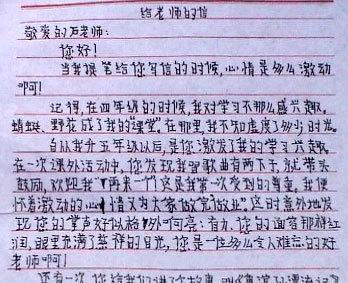 给老师的信
敬爱的石老师：
您好！
当我提笔给您写信的时候，心情是多么激动
啊！
记得，在四年级的时候，我对学习不那么感兴趣。
蜻蜓、野花成了我的“课堂”。在那里，我不知虚度了多少时光。
自从我升五年级以后，是您激发了我的学习兴趣。
在一次课外活动中，您发现我唱歌曲有两下子，就带头
鼓励，欢迎我“再来一个”这是我第一次受到的尊重，我便
怀着激动的心情又为大家做完做业”这时意外地发
现您的掌声好似格外响亮：有力，您的面容那样红
润，眼里充满了慈祥的目光，您是一位多么令人难忘的好
老师啊！
还有一次，您给我们讲了故事